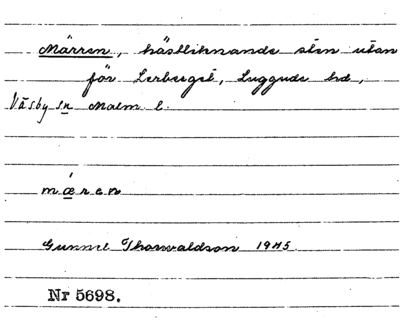 Märren, hästliknande sten utan
för Lerberget, Luggude hd,
Väsby sn Malm. l.
mǽren
Gunnel Thorwaldson 1945.
Nr 5698.